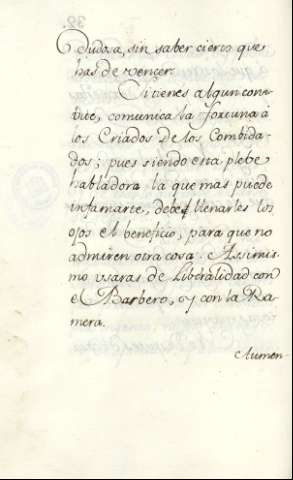 Dudosa, sin saber cierto que
has de vençer.
Si tienes algun con-
vite, comunica la fortuna à
los Criados de los Combida-
dos; pues siendo esta plebe
habladora la que mas puede
infamarte, debes llenarles los
ojos el beneficio, para que no
admiren otra cosa. Assimis-
mo usaras de Liberalidad con
el Barbero, y con la Ra-
mera.
Aumen-